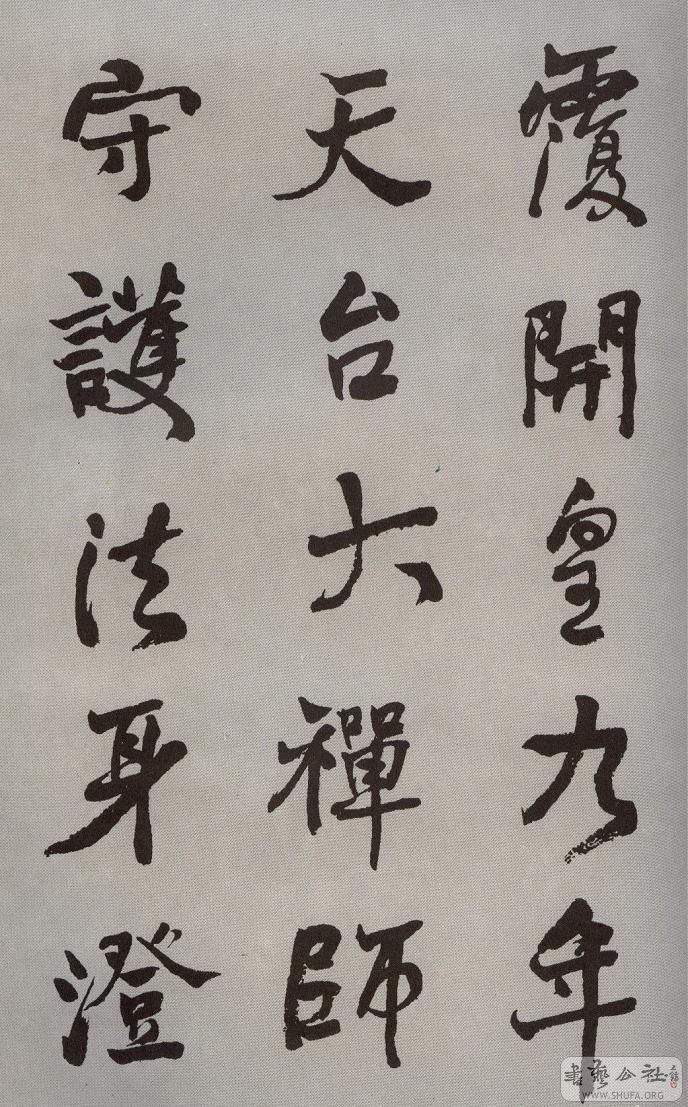 覆開皇九年
天台大禪師
守護法身澄
書藝公社
WWW.SHUFA.ORG